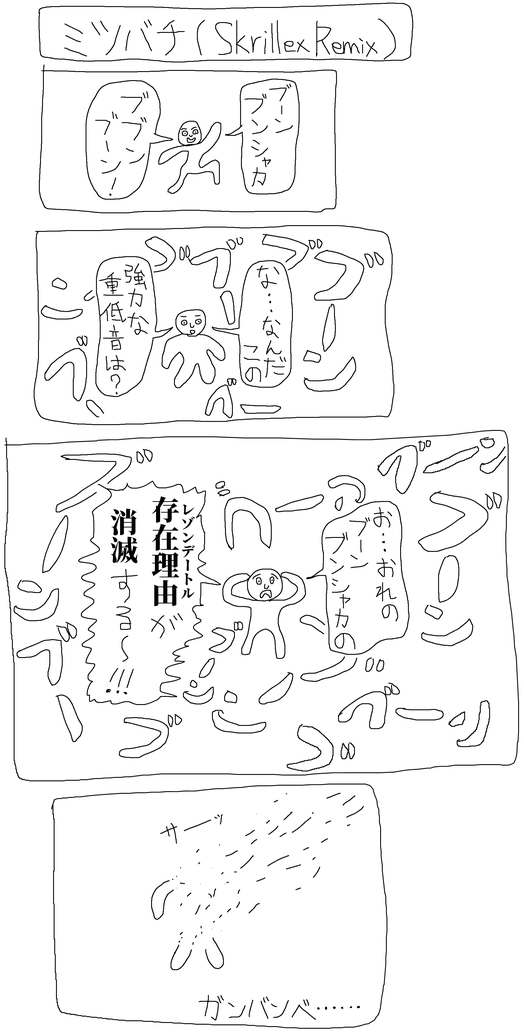 ミツバチ(Skrillex Remix)
ブーン
ブンシャカ
ブブン
ブーン!
な…なんだ
この
強力な
重低音は?
ブ
ブ
ブ
ブーン
ブーン
お…おれの
ブーン
ブンシャカの
レゾンデートル
存在理由が
消滅する〜!!!
ブーン
ブーン
ブーン
サーッ
ガンバンベ……